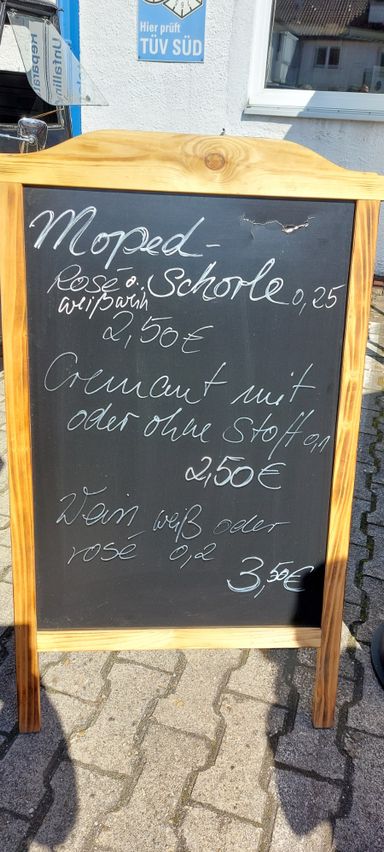 Hier prüft
TÜV SÜD
Moped-
Rosé o. Schorle 0,25
weißwein
2,50 €
Cremant mit
oder ohne Stoff 0,1
2,50 €
Wein weiß oder
rosé 0,2
3,50 €